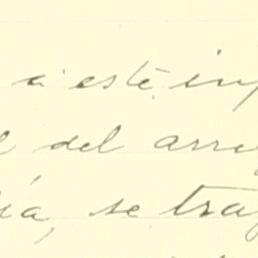 a este, inf
l del arre
ía, se traf